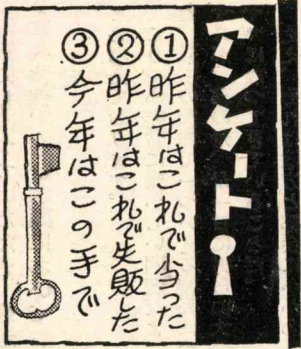 アンケート
①昨年はこれで当った
②昨年はこれで失敗した
③今年はこの手で